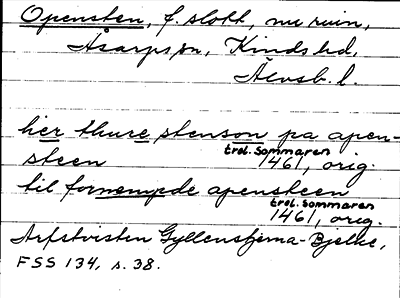 Opensten, f. slott, nu ruin,
Åsarps sn, Kinds hd,
Älvsb. l.
her thure stenson pa apen-
steen trol. sommaren 1461, orig.
til fornempde apensteen
trol. sommaren 1461, orig.
Arfstvisten Gyllenstjerna-Bjelke,
FSS 134, s. 38.